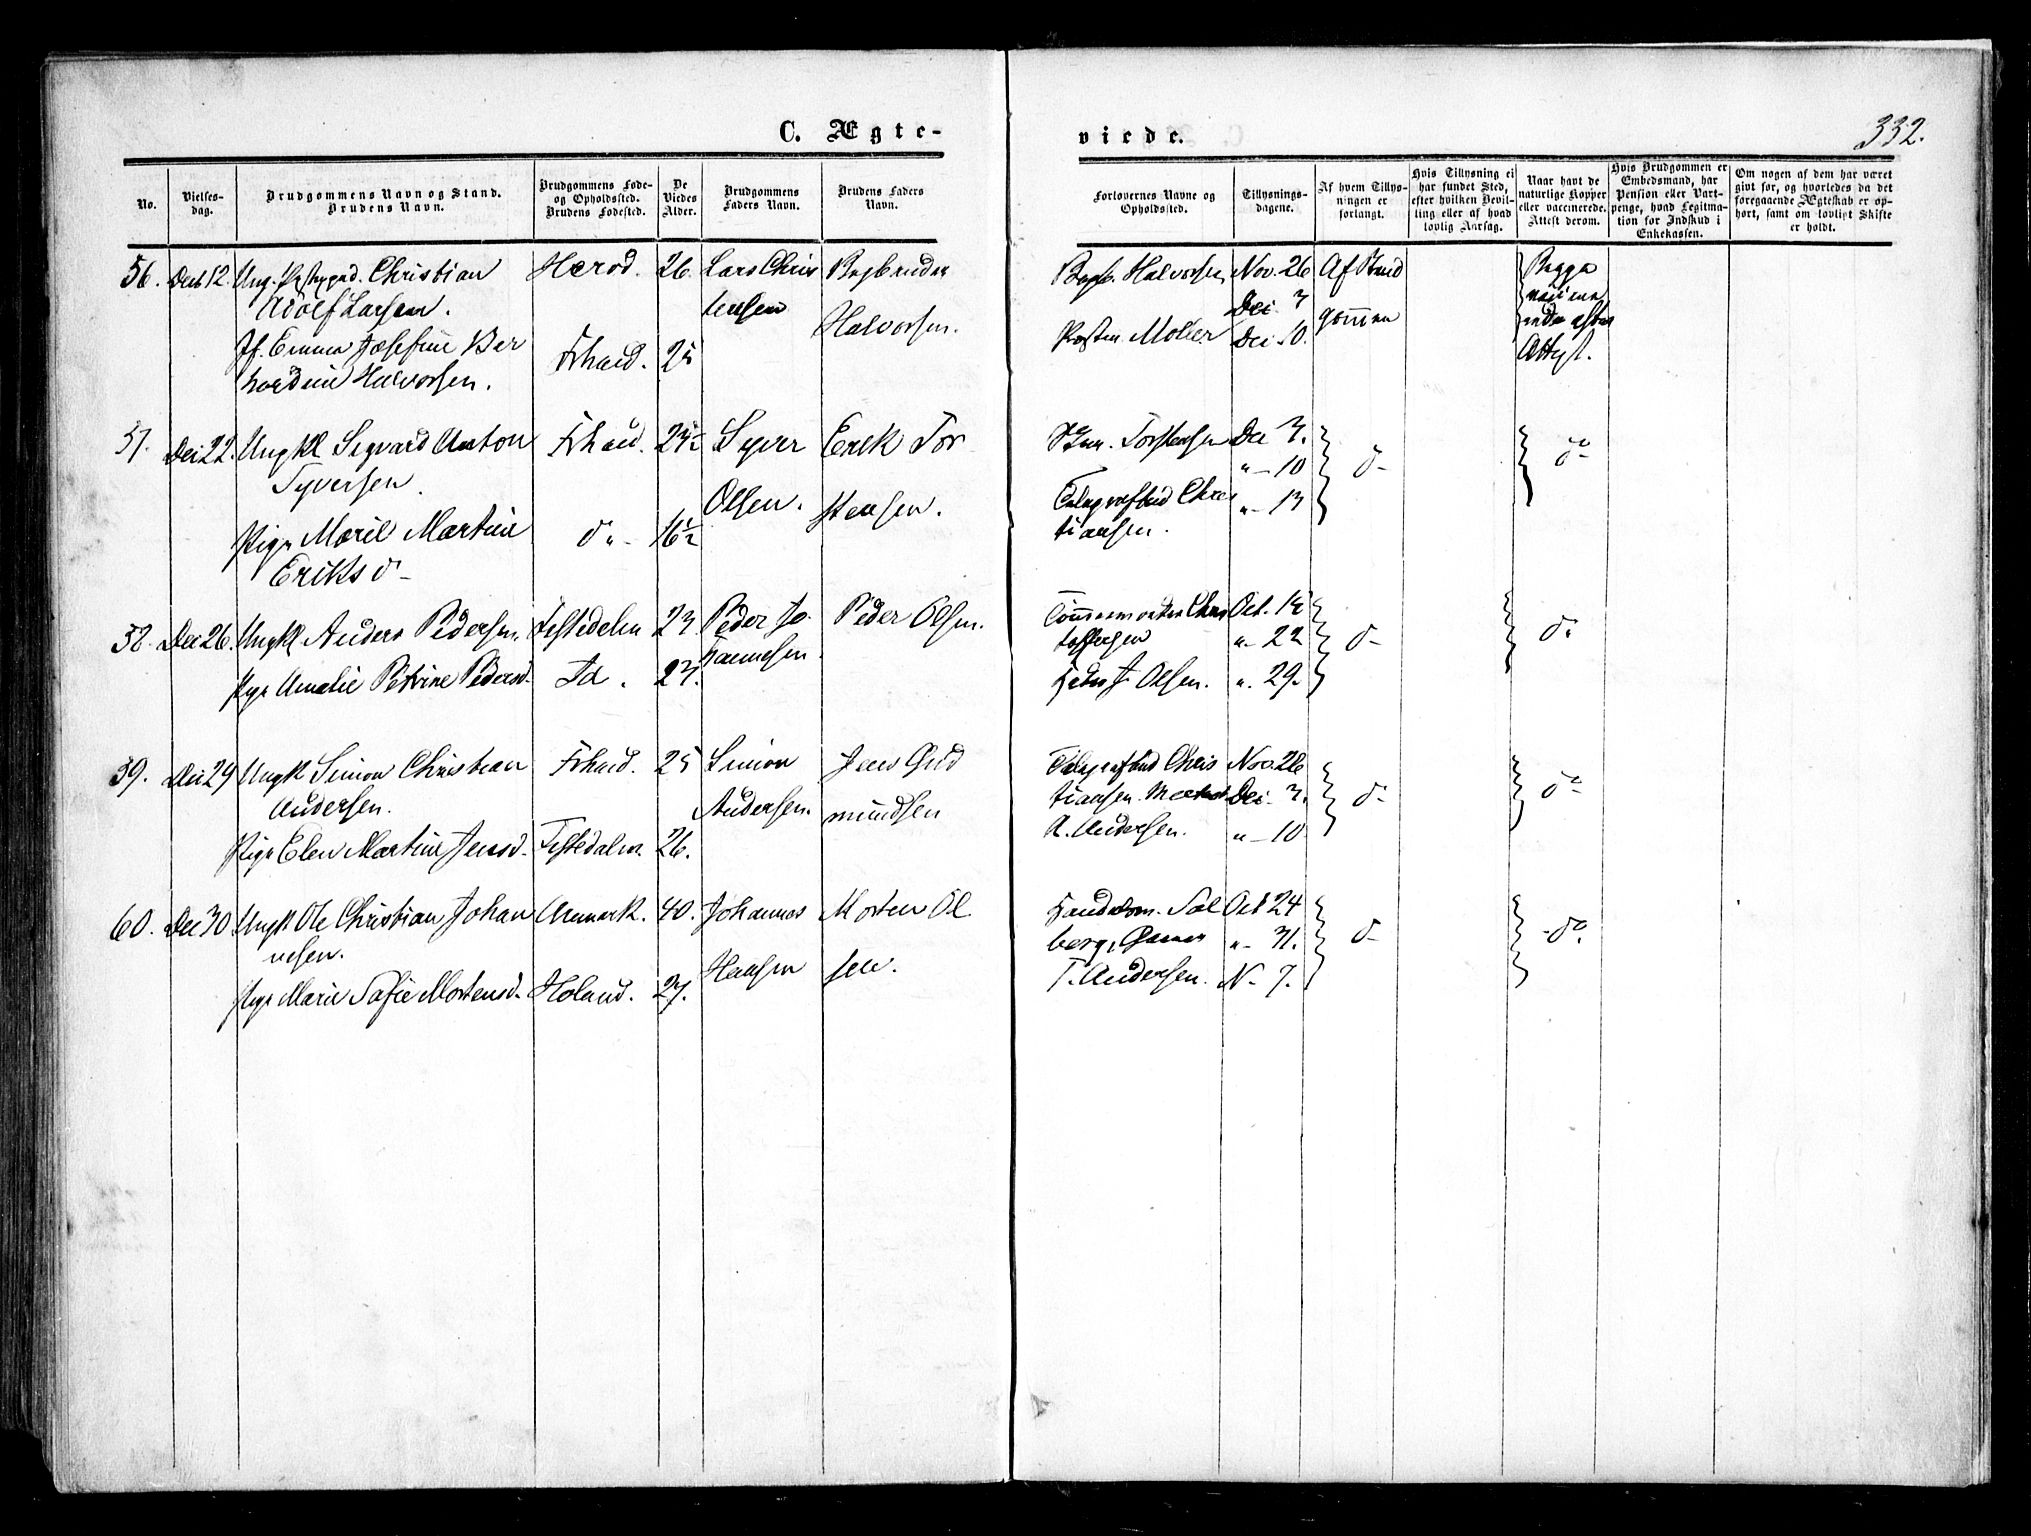 C. Ægte-
viede.
332.
No.
Vielses-
dag.
Brudgommens Navn og Stand.
Brudens Navn.
Brudgommens Føde-
og Opholdssted.
Brudens Fødested.
De
Viedes
Alder.
Brudgommens
Faders Navn.
Brudens Faders
Navn.
Forlovernes Navne og
Opholdssted.
Tillysnings-
dagene.
Af hvem Tillys-
ningen er
forlangt.
Hvis Tillysning ei
har fundet Sted,
efter hvilken Bevil-
ling eller af hvad
lovlig Aarsag.
Naar havt de
naturlige Kopper
eller vaccinerede.
Attest derom.
Hvis Brudgommen er
Embedsmand, har
Pension eller Vart-
penge, hvad Legitima-
tion for Indskud i
Enkekassen.
Om nogen af dem har været
givt før, og hvorledes da det
foregaaende Ægteskab er op-
hørt, samt om lovligt Skifte
er holdt.
56. Dec 12. Ung. Christian Herød. 26. Lars Chris
Adolf Larsen. tensen Halvorsen.
Jf. Emma Josefine Ber Frhald. 25
hardine Halvorsen.
Halvorsen Nov. 26 Af Brud
Dec 3 gommen
Møller Dec 10.
Begge
Attest.
57. Dec 22. Ungkl Sigvard Anton Frhald. 23½ Syver Erik Tor
Syversen. Olsen. stensen.
Pige Maril Martine do 16½
Eriksd
Torstensen Dec 3.
" 10 do do
Telegrafbud Chris " 17
tiansen.
58. Dec 26. Ungkl Anders Pedersen, Tistedalen 23. Peder Jo Peder Olsen.
hannesen
Pige Amalie Petrine Pedersd. Id. 27.
Tømmermester Chris Oct. 15
toffersen " 22 do do
J. Olsen. " 29.
59. Dec 29 Ungk Simon Christian Frhald. 25 Simon Jens Gud
Andersen. Andersen. mundsen
Pige Elen Martine Jensd. Tistedalen. 26.
Telegrafbud Chris Nov 26
tiansen. Dec 3. do do
A. Andersen. " 10
60. Dec 30. Ungk Ole Christian Johan Aremark. 40. Johannes Morten Ol
nesen. Hansen sen.
Pige Marie Sofie Mortensd. Holand. 27.
Sol Oct 24
berg, " 31. do do
T. Andersen. N. 7.